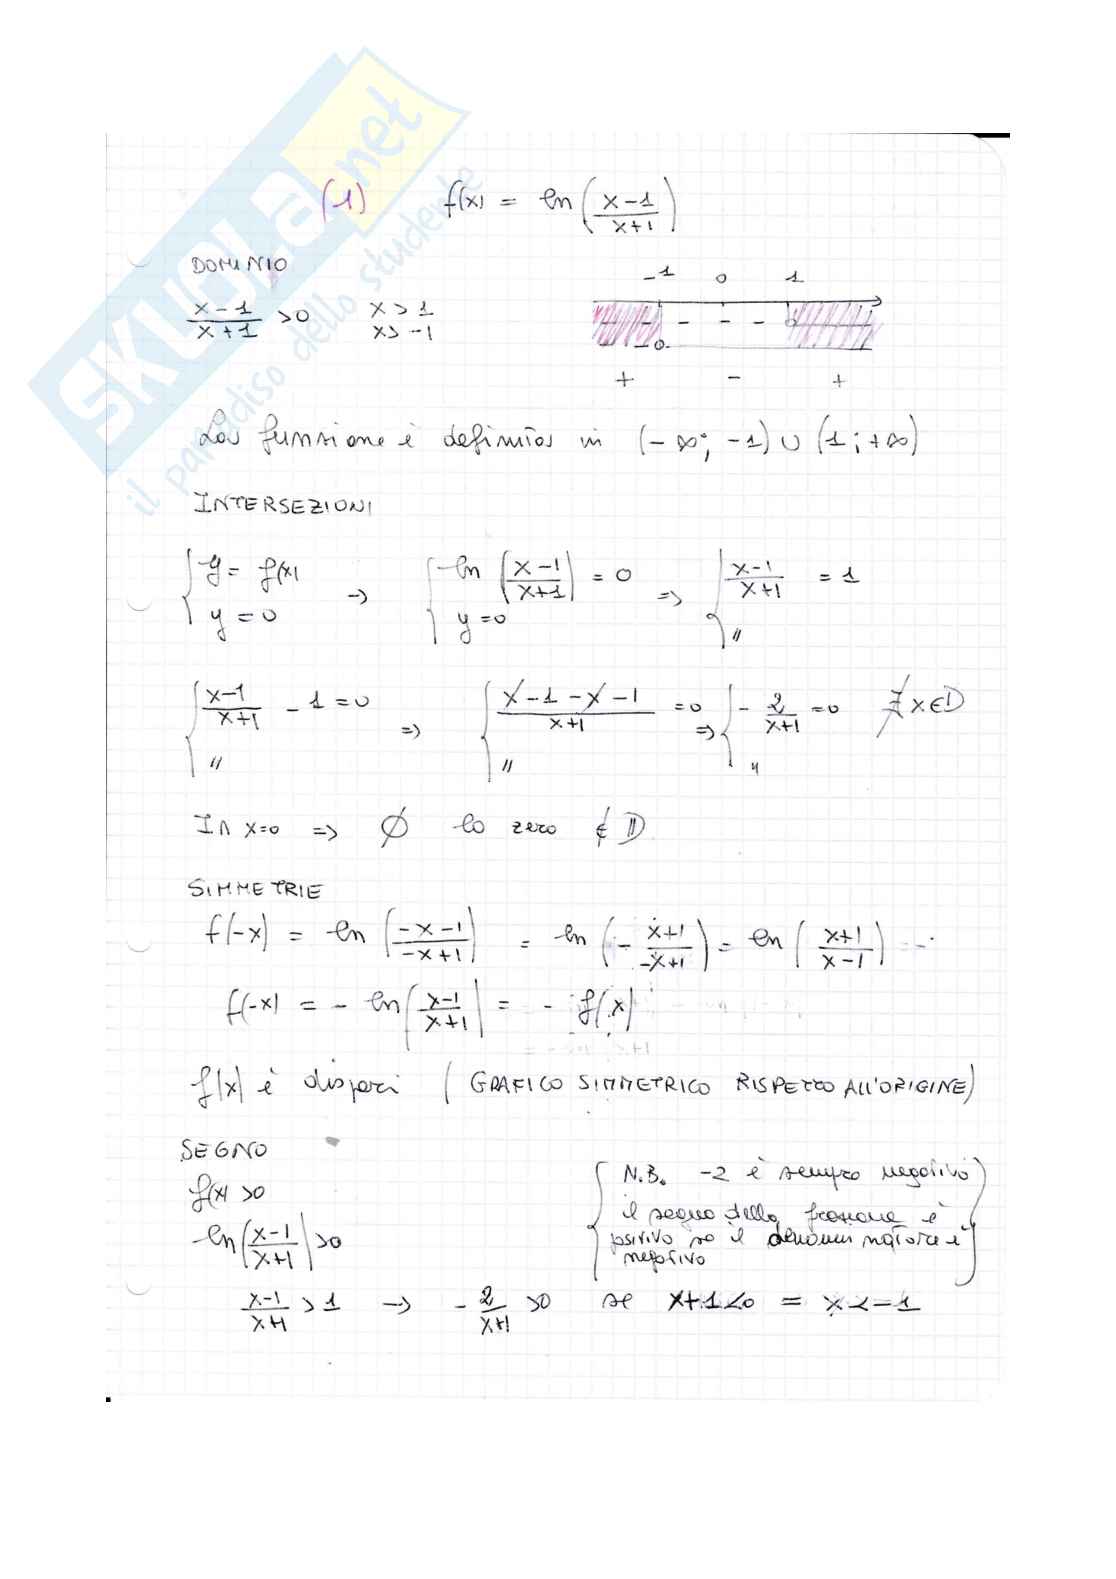 SKUOLA.net
il paradiso dello studente
(1) f(x) = ln((x-1)/(x+1))
DOMINIO
-1 0 1
(x-1)/(x+1) > 0 x > 1
x > -1
+ - +
La funzione è definita in (-∞; -1) ∪ (1; +∞)
INTERSEZIONI
{ y = f(x) → { ln((x-1)/(x+1)) = 0 ⇒ { (x-1)/(x+1) = 1
y = 0 y = 0 //
{ (x-1)/(x+1) - 1 = 0 ⇒ { (x-1-x-1)/(x+1) = 0 ⇒ { -2/(x+1) = 0 ∄ x ∈ D
// // //
In x=0 ⇒ ∅ lo zero ∉ D
SIMMETRIE
f(-x) = ln((-x-1)/(-x+1)) = ln(-(x+1)/(-x+1)) = ln((x+1)/(x-1)) = -
f(-x) = - ln((x-1)/(x+1)) = - f(x)
f(x) è dispari (GRAFICO SIMMETRICO RISPETTO ALL'ORIGINE)
SEGNO
f(x) > 0
ln((x-1)/(x+1)) > 0
{ N.B. -2 è sempre negativo
il segno della frazione è
positivo se il denominatore è
negativo }
(x-1)/(x+1) > 1 → -2/(x+1) > 0 se x+1<0 = x < -1